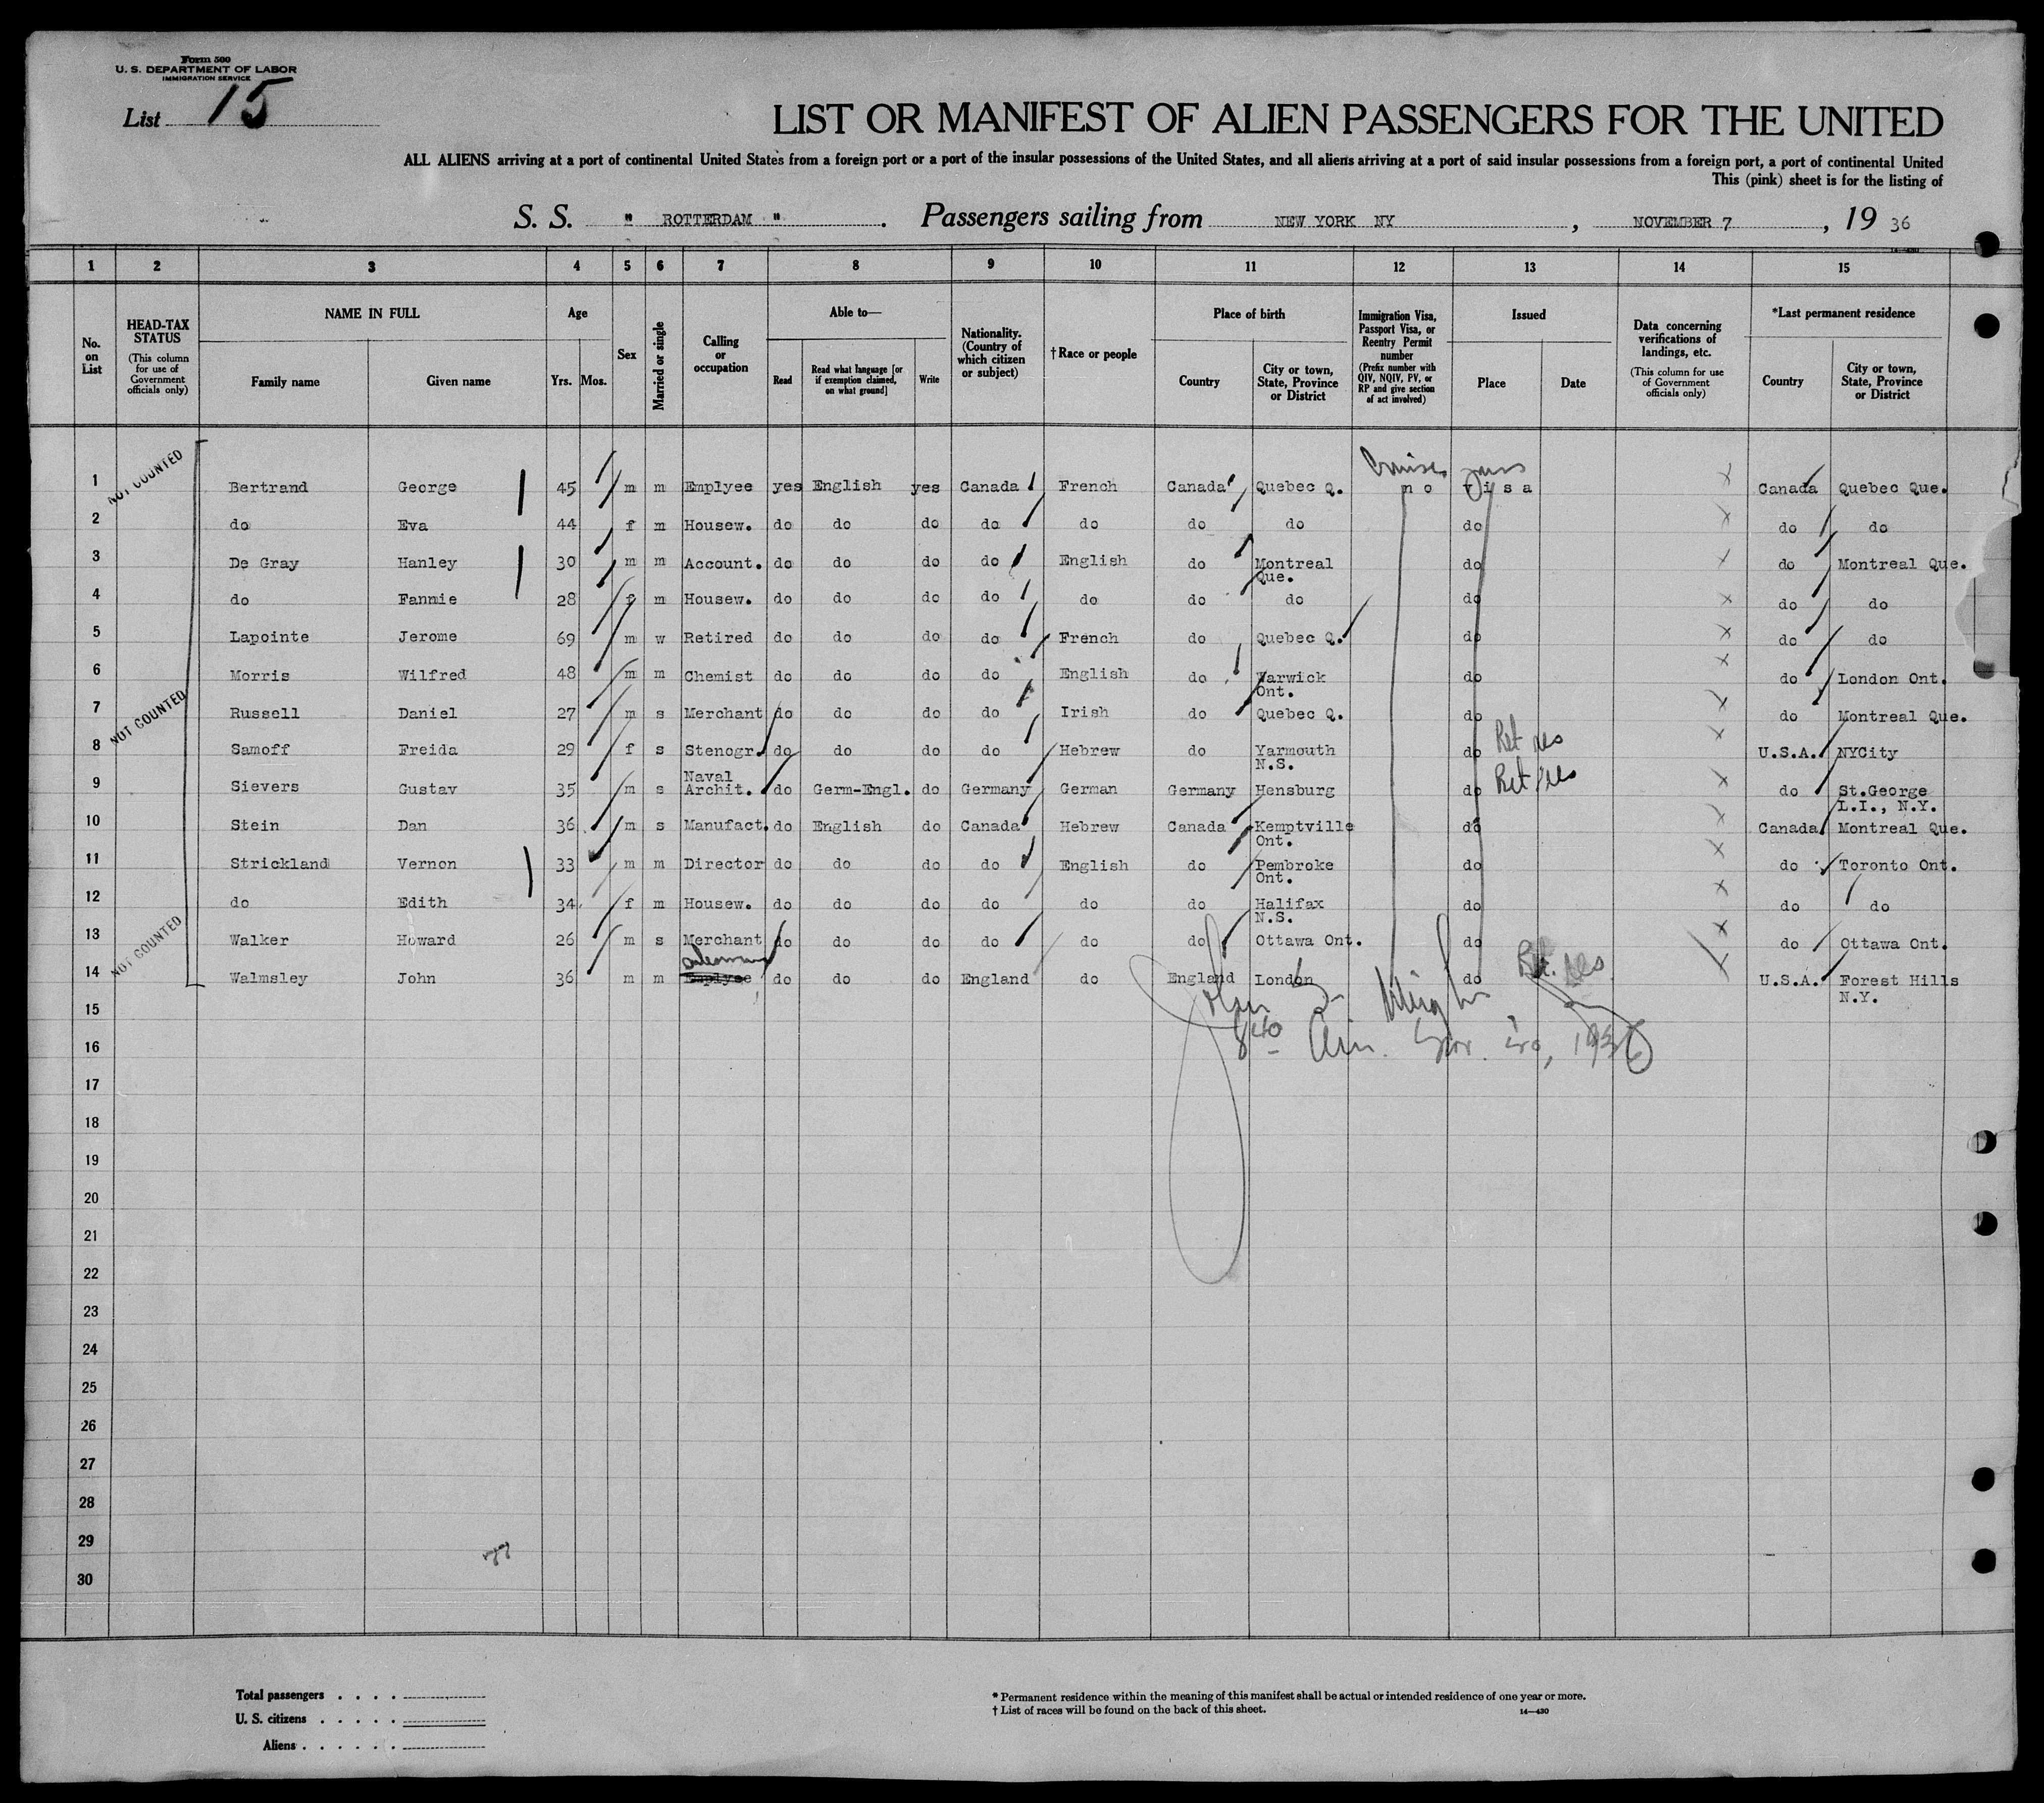 Form 500
U. S. DEPARTMENT OF LABOR
IMMIGRATION SERVICE
List 15
LIST OR MANIFEST OF ALIEN PASSENGERS FOR THE UNITED
ALL ALIENS arriving at a port of continental United States from a foreign port or a port of the insular possessions of the United States, and all aliens arriving at a port of said insular possessions from a foreign port, a port of continental United
This (pink) sheet is for the listing of
S. S. " ROTTERDAM " . Passengers sailing from NEW YORK NY , NOVEMBER 7 , 19 36
14-430
1 2 3 4 5 6 7 8 9 10 11 12 13 14 15
No. on List
HEAD-TAX STATUS
(This column for use of Government officials only)
NAME IN FULL
Family name Given name
Age
Yrs. Mos.
Sex
Married or single
Calling or occupation
Able to—
Read
Read what language [or if exemption claimed, on what ground]
Write
Nationality. (Country of which citizen or subject)
†Race or people
Place of birth
Country
City or town, State, Province or District
Immigration Visa, Passport Visa, or Reentry Permit number
(Prefix number with QIV, NQIV, PV, or RP and give section of act involved)
Issued
Place Date
Data concerning verifications of landings, etc.
(This column for use of Government officials only)
*Last permanent residence
Country
City or town, State, Province or District
NOT COUNTED
Cruise
1 Bertrand George 45 m m Emplyee yes English yes Canada French Canada Quebec Q. no visa x Canada Quebec Que.
2 do Eva 44 f m Housew. do do do do do do do do x do do
3 De Gray Hanley 30 m m Account. do do do do English do Montreal Que. do x do Montreal Que.
4 do Fannie 28 f m Housew. do do do do do do do do x do do
5 Lapointe Jerome 69 m w Retired do do do do French do Quebec Q. do x do do
6 Morris Wilfred 48 m m Chemist do do do do English do Warwick Ont. do x do London Ont.
NOT COUNTED
7 Russell Daniel 27 m s Merchant do do do do Irish do Quebec Q. do x do Montreal Que.
8 Samoff Freida 29 f s Stenogr. do do do do Hebrew do Yarmouth N.S. do Ret res x U.S.A. NYCity
9 Sievers Gustav 35 m s Naval Archit. do Germ-Engl. do Germany German Germany Hensburg do Ret res x do St.George L.I., N.Y.
10 Stein Dan 36 m s Manufact. do English do Canada Hebrew Canada Kemptville Ont. do x Canada Montreal Que.
11 Strickland Vernon 33 m m Director do do do do English do Pembroke Ont. do x do Toronto Ont.
12 do Edith 34 f m Housew. do do do do do do Halifax N.S. do x do do
NOT COUNTED
13 Walker Howard 26 m s Merchant do do do do do do Ottawa Ont. do x do Ottawa Ont.
14 Walmsley John 36 m m Emplyee do do do England do England London do Ret. res x U.S.A. Forest Hills N.Y.
15
16
17
18
19
20
21
22
23
24
25
26
27
28
29
30
Total passengers . . . .
U. S. citizens . . . . .
Aliens . . . . . .
* Permanent residence within the meaning of this manifest shall be actual or intended residence of one year or more.
† List of races will be found on the back of this sheet.
14—430